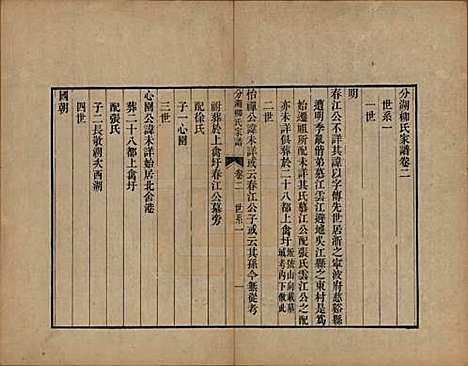 分湖柳氏家譜卷二
世系一
一世
明
春江公不詳其諱以字傳先世居浙之寧波府慈谿縣
遭明季亂偕弟慕江雲江避地吳江縣之東村是爲
始遷祖所配未詳其氏慕江公配張氏雲江公之配
亦未詳俱葬於二十八都上禽圩
二世
怡禪公諱未詳或云春江公子或云其孫今無從考
分湖柳氏家譜 卷二 世系一 一
祔葬於上禽圩春江公墓旁
配徐氏
子一心園
三世
心園公諱未詳始居北舍港
葬二十八都上禽圩
配張氏
子二長敬湖次西湖
四世
國朝